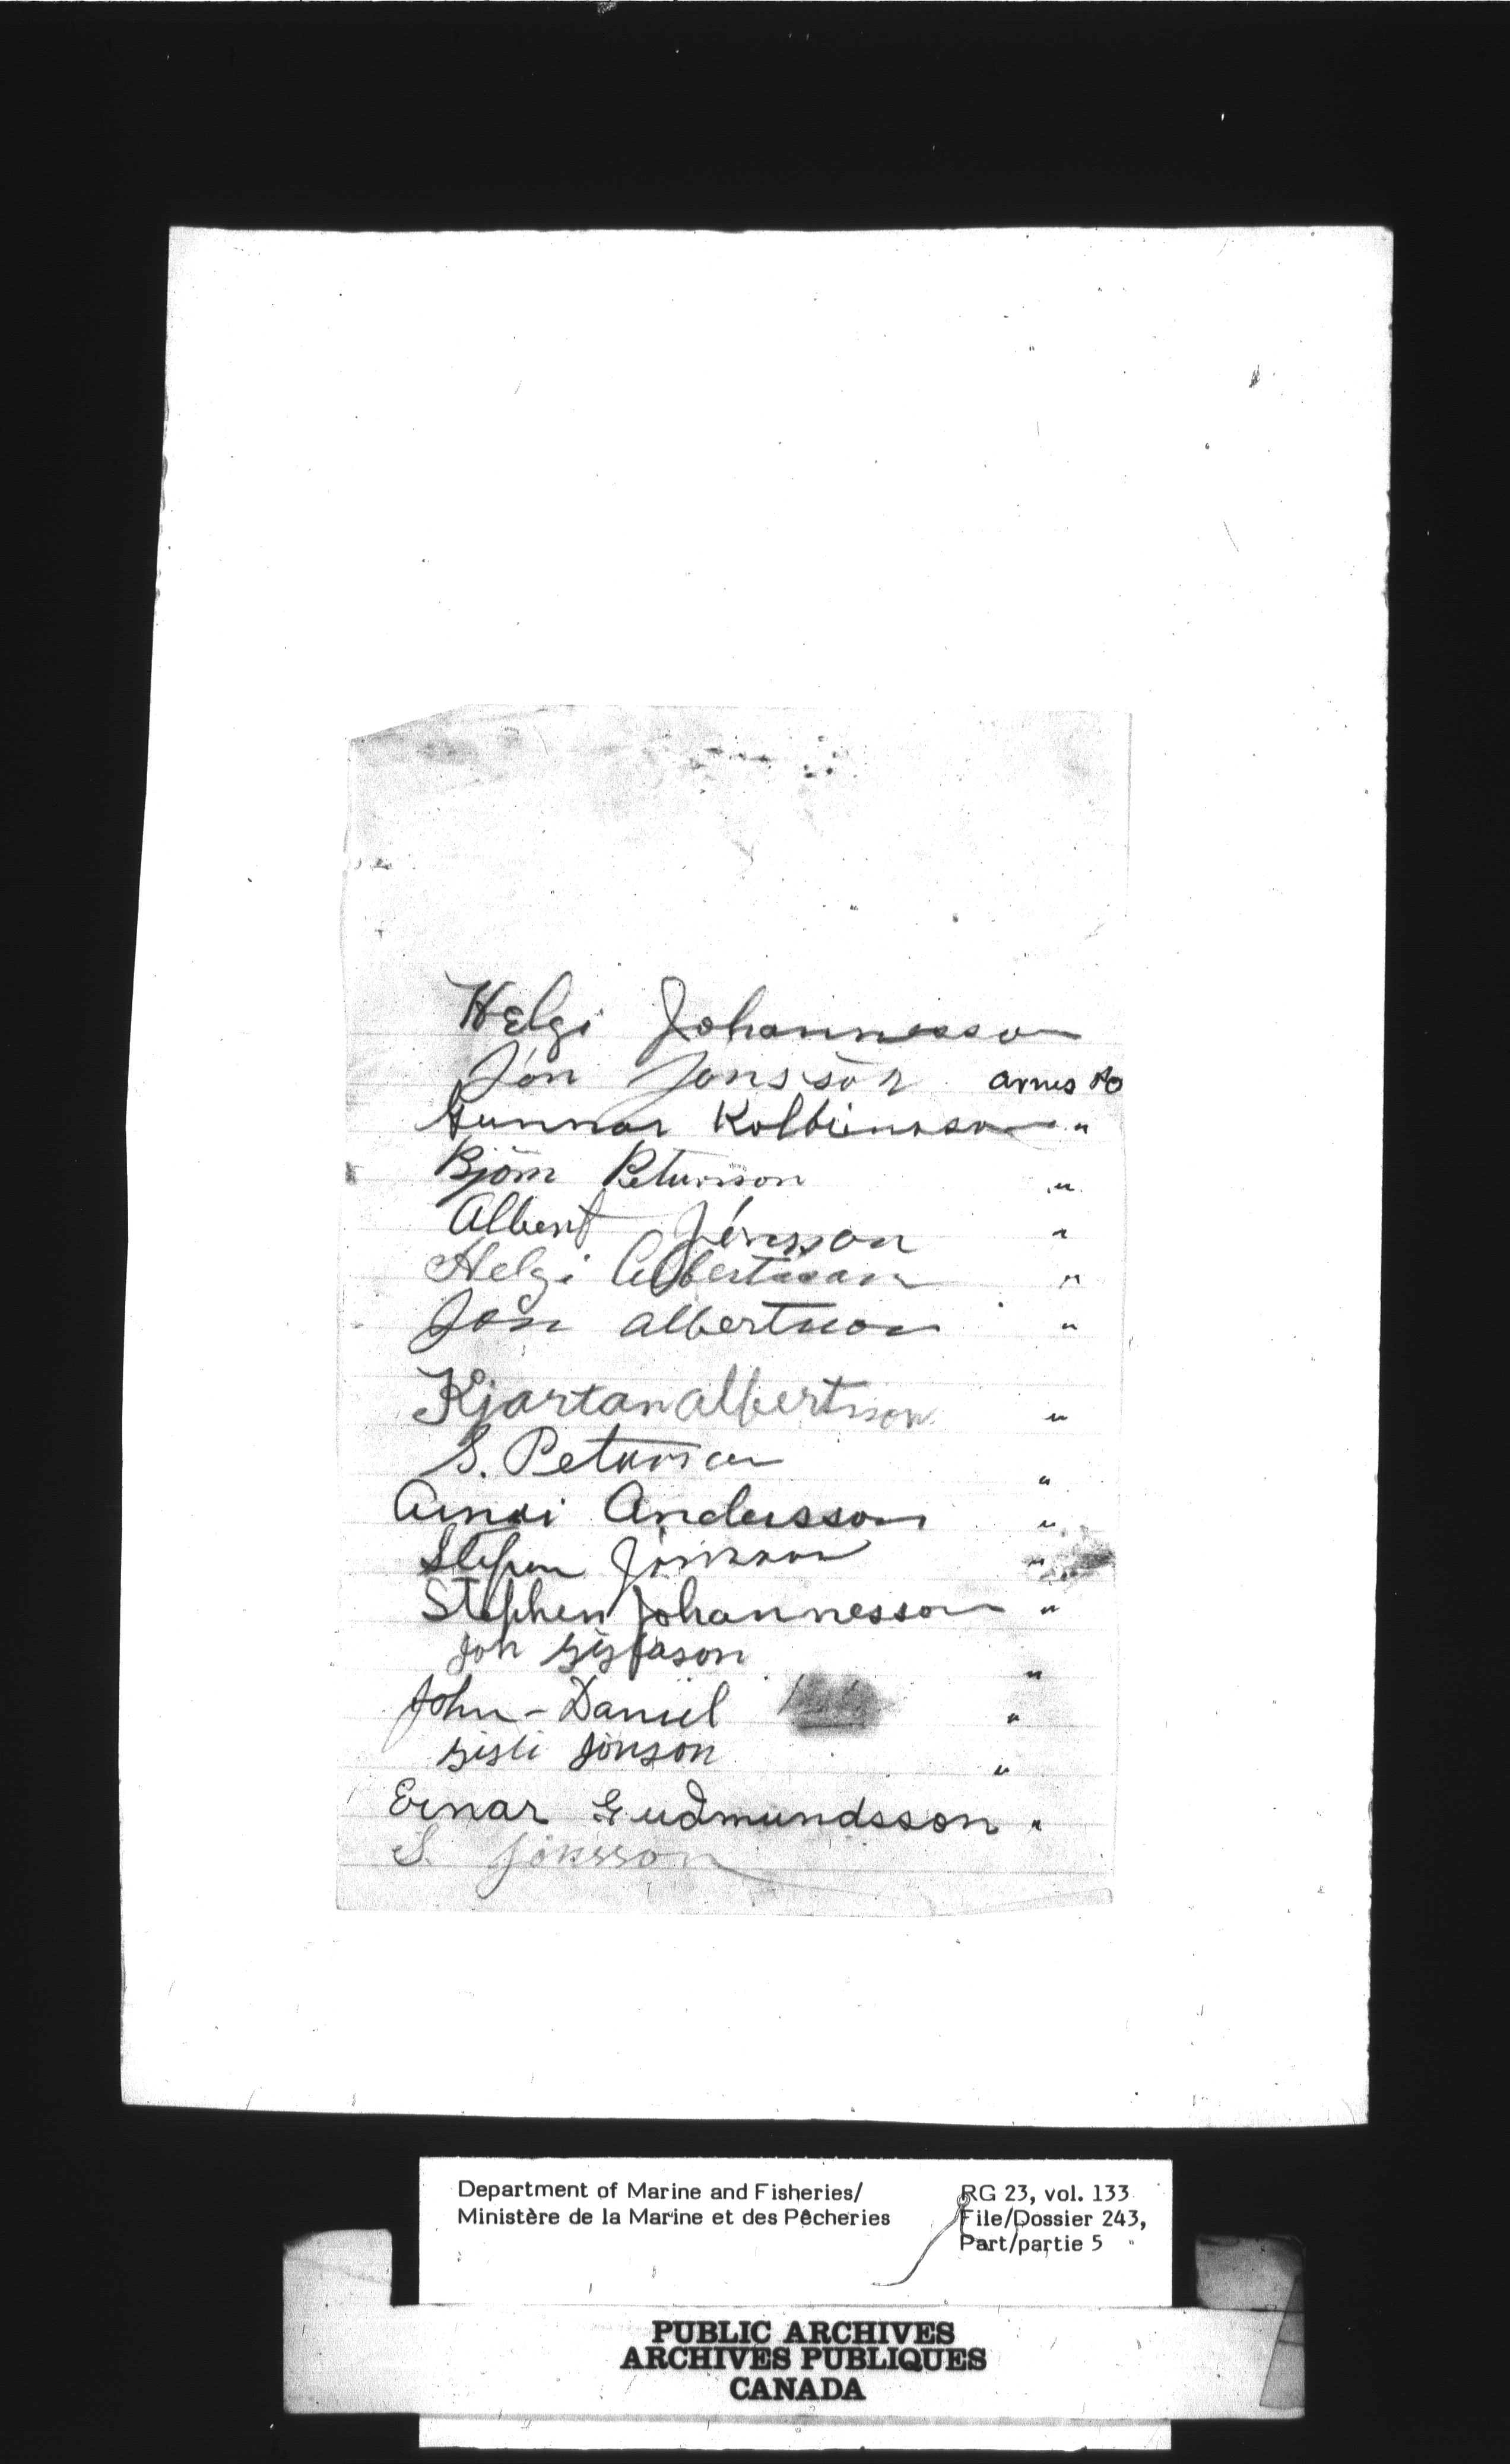 Helgi Johannesson
Jón Jónsson arnes PO
Gunnar Kolbeinsson "
Björn Petursson "
Albert Jónsson "
Helgi Albertsson "
Jón albertsson "
Kjartan albertsson "
S. Petursson "
Andersson "
Stefan Jónsson "
Stephen Johannesson "
Jon Gislason "
John - Daniel "
Gisli Jónson "
Einar Gudmundsson "
S. Jónsson
Department of Marine and Fisheries/ RG 23, vol. 133
Ministère de la Marine et des Pêcheries File/Dossier 243,
Part/partie 5
PUBLIC ARCHIVES
ARCHIVES PUBLIQUES
CANADA